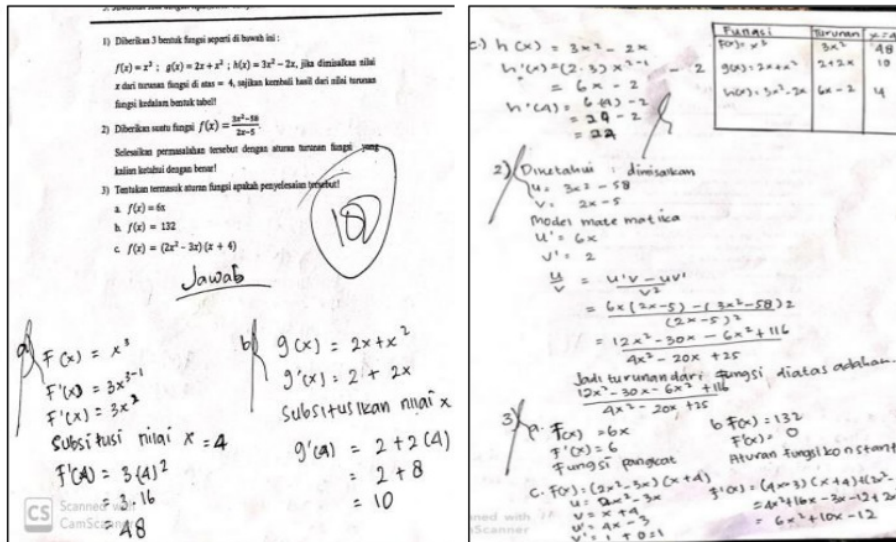 1) Diberikan 3 bentuk fungsi seperti di bawah ini :
f(x) = x³ ; g(x) = 2x + x² ; h(x) = 3x² − 2x, jika dimisalkan nilai
x dari turunan fungsi di atas = 4, sajikan kembali hasil dari nilai turunan
fungsi kedalam bentuk tabel!
2) Diberikan suatu fungsi f(x) = (3x²−58)/(2x−5).
Selesaikan permasalahan tersebut dengan aturan turunan fungsi yang
kalian ketahui dengan benar!
3) Tentukan termasuk aturan fungsi apakah penyelesaian tersebut!
a. f(x) = 6x
b. f(x) = 132
c. f(x) = (2x² − 3x)(x + 4)
100
Jawab
a) F(x) = x³
F'(x) = 3x³⁻¹
F'(x) = 3x²
Subsitusi nilai x = 4
F'(4) = 3(4)²
= 3.16
= 48
b) g(x) = 2x + x²
g'(x) = 2 + 2x
Subsitusikan nilai x
g'(4) = 2 + 2(4)
= 2 + 8
= 10
CS Scanned with
CamScanner
c.) h(x) = 3x² − 2x
h'(x) = (2.3)x²⁻¹ − 2
= 6x − 2
h'(4) = 6(4) − 2
= 24 − 2
= 22
Fungsi Turunan x=4
F(x) = x³ 3x² 48
g(x) = 2x+x² 2+2x 10
h(x) = 3x²−2x 6x−2 4
2) Diketahui : dimisalkan
u = 3x² − 58
v = 2x − 5
Model matematika
u' = 6x
v' = 2
u/v = (u'v − uv')/v²
= (6x(2x−5) − (3x²−58)2)/(2x−5)²
= (12x² − 30x − 6x² + 116)/(4x² − 20x + 25)
Jadi turunan dari fungsi diatas adalah
(12x² − 30x − 6x² + 116)/(4x² − 20x + 25)
3) a. F(x) = 6x
F'(x) = 6
Fungsi pangkat
b. F(x) = 132
F'(x) = 0
Aturan fungsi konstant
c. F(x) = (2x² − 3x)(x + 4)
u = 2x² − 3x
v = x + 4
u' = 4x − 3
v' = 1 + 0 = 1
F'(x) = (4x−3)(x+4)+(2x²−
= 4x²+16x−3x−12+2x
= 6x²+10x−12
ned with
Scanner